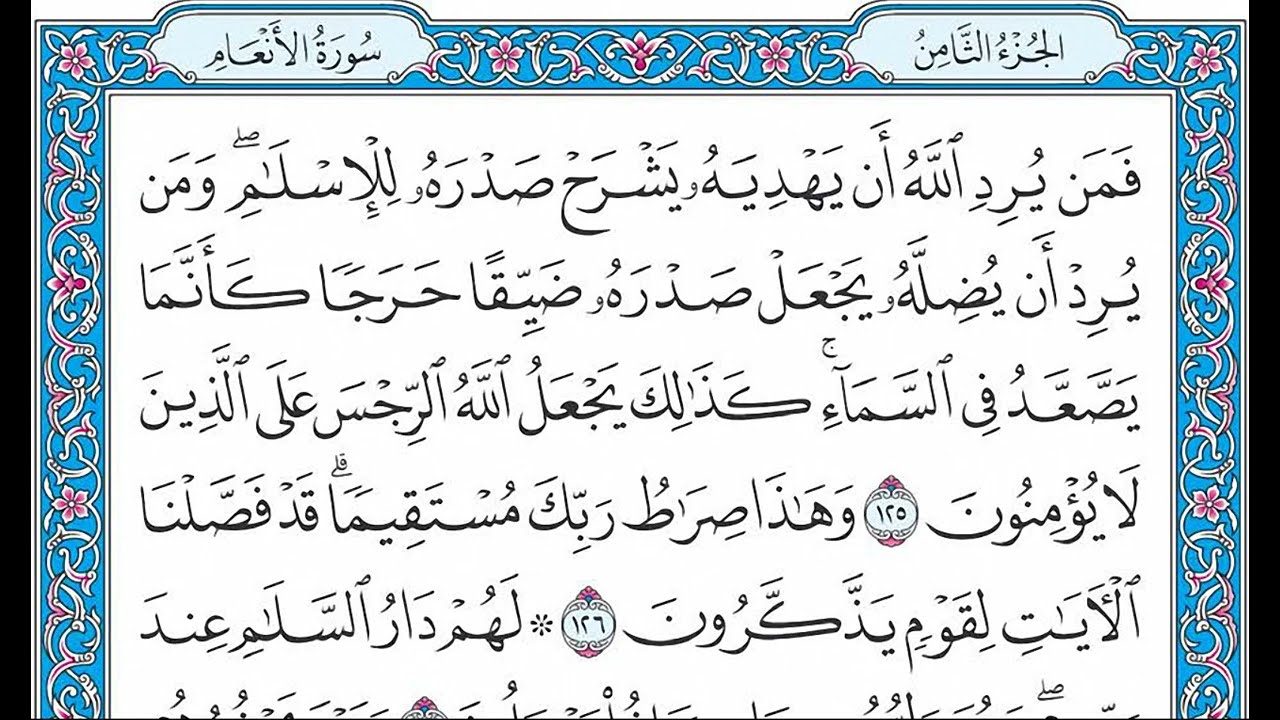 الجُزْءُ الثَّامِنُ
سُورَةُ الأَنْعَامِ
فَمَن يُرِدِ ٱللَّهُ أَن يَهْدِيَهُۥ يَشْرَحْ صَدْرَهُۥ لِلْإِسْلَٰمِۖ وَمَن
يُرِدْ أَن يُضِلَّهُۥ يَجْعَلْ صَدْرَهُۥ ضَيِّقًا حَرَجًا كَأَنَّمَا
يَصَّعَّدُ فِي ٱلسَّمَآءِۚ كَذَٰلِكَ يَجْعَلُ ٱللَّهُ ٱلرِّجْسَ عَلَى ٱلَّذِينَ
لَا يُؤْمِنُونَ ١٢٥ وَهَٰذَا صِرَٰطُ رَبِّكَ مُسْتَقِيمًاۗ قَدْ فَصَّلْنَا
ٱلْأٓيَٰتِ لِقَوْمٍ يَذَّكَّرُونَ ١٢٦ ۞ لَهُمْ دَارُ ٱلسَّلَٰمِ عِندَ